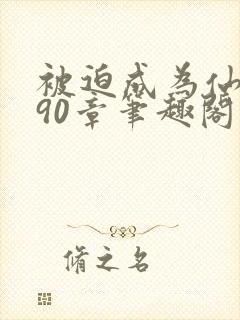 被迫成为仙
90章笔趣阁
脩之名